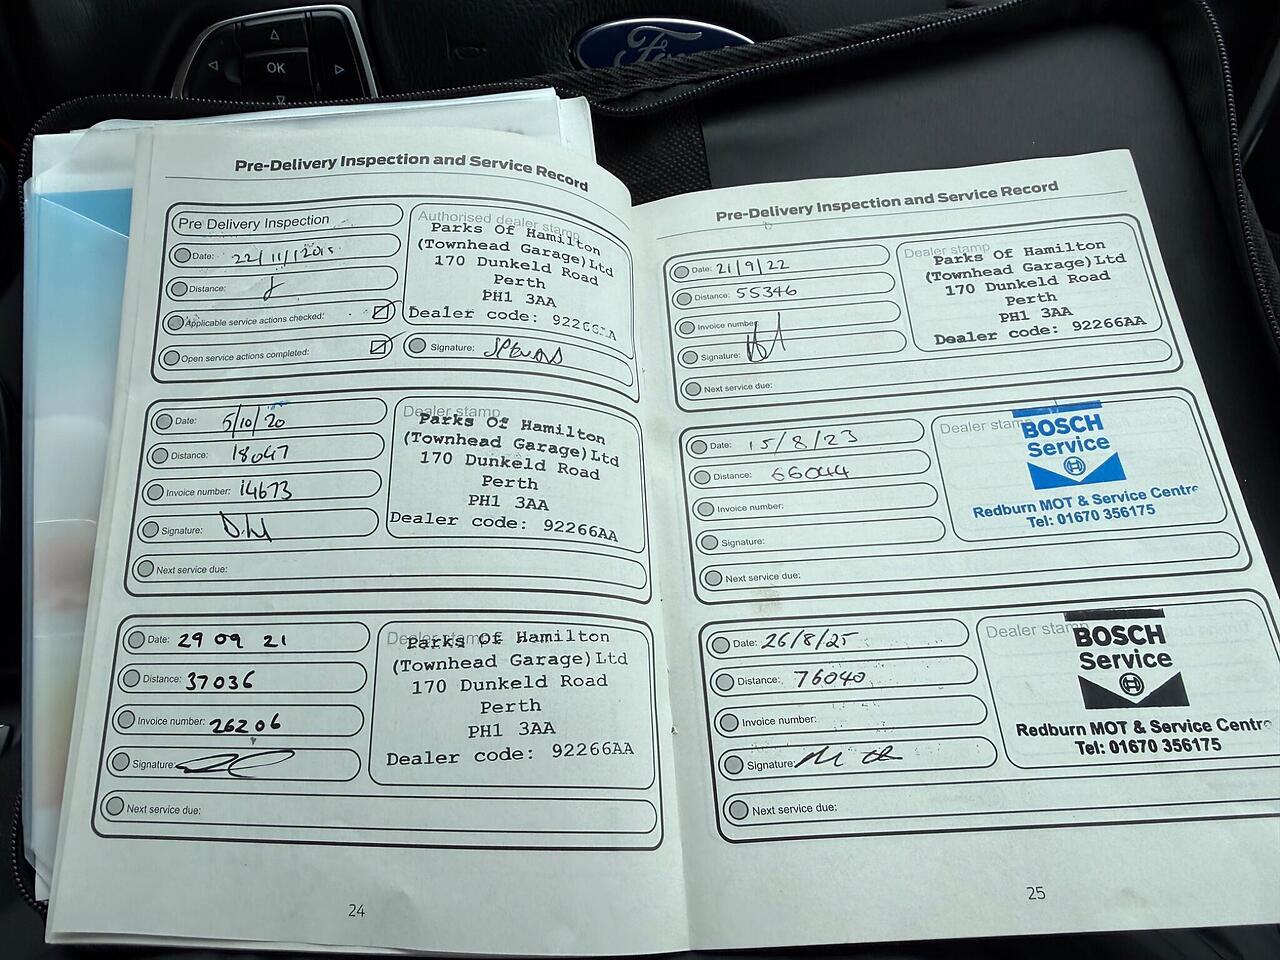 OK
Ford
Pre-Delivery Inspection and Service Record
Pre Delivery Inspection
Date: 22/11/2015
Distance:
Applicable service actions checked:
Open service actions completed:
Authorised dealer stamp
Parks Of Hamilton
(Townhead Garage)Ltd
170 Dunkeld Road
Perth
PH1 3AA
Dealer code: 92266AA
Signature:
Date: 5/10/20
Distance: 18047
Invoice number: 14673
Signature:
Next service due:
Dealer stamp
Parks Of Hamilton
(Townhead Garage)Ltd
170 Dunkeld Road
Perth
PH1 3AA
Dealer code: 92266AA
Date: 29 09 21
Distance: 37036
Invoice number: 26206
Signature:
Next service due:
Dealer stamp
Parks Of Hamilton
(Townhead Garage)Ltd
170 Dunkeld Road
Perth
PH1 3AA
Dealer code: 92266AA
24
Pre-Delivery Inspection and Service Record
Date: 21/9/22
Distance: 55346
Invoice number
Signature:
Next service due:
Dealer stamp
Parks Of Hamilton
(Townhead Garage)Ltd
170 Dunkeld Road
Perth
PH1 3AA
Dealer code: 92266AA
Date: 15/8/23
Distance: 66044
Invoice number:
Signature:
Next service due:
Dealer stamp
BOSCH
Service
Redburn MOT & Service Centre
Tel: 01670 356175
Date: 26/8/25
Distance: 76040
Invoice number:
Signature:
Next service due:
Dealer stamp
BOSCH
Service
Redburn MOT & Service Centre
Tel: 01670 356175
25